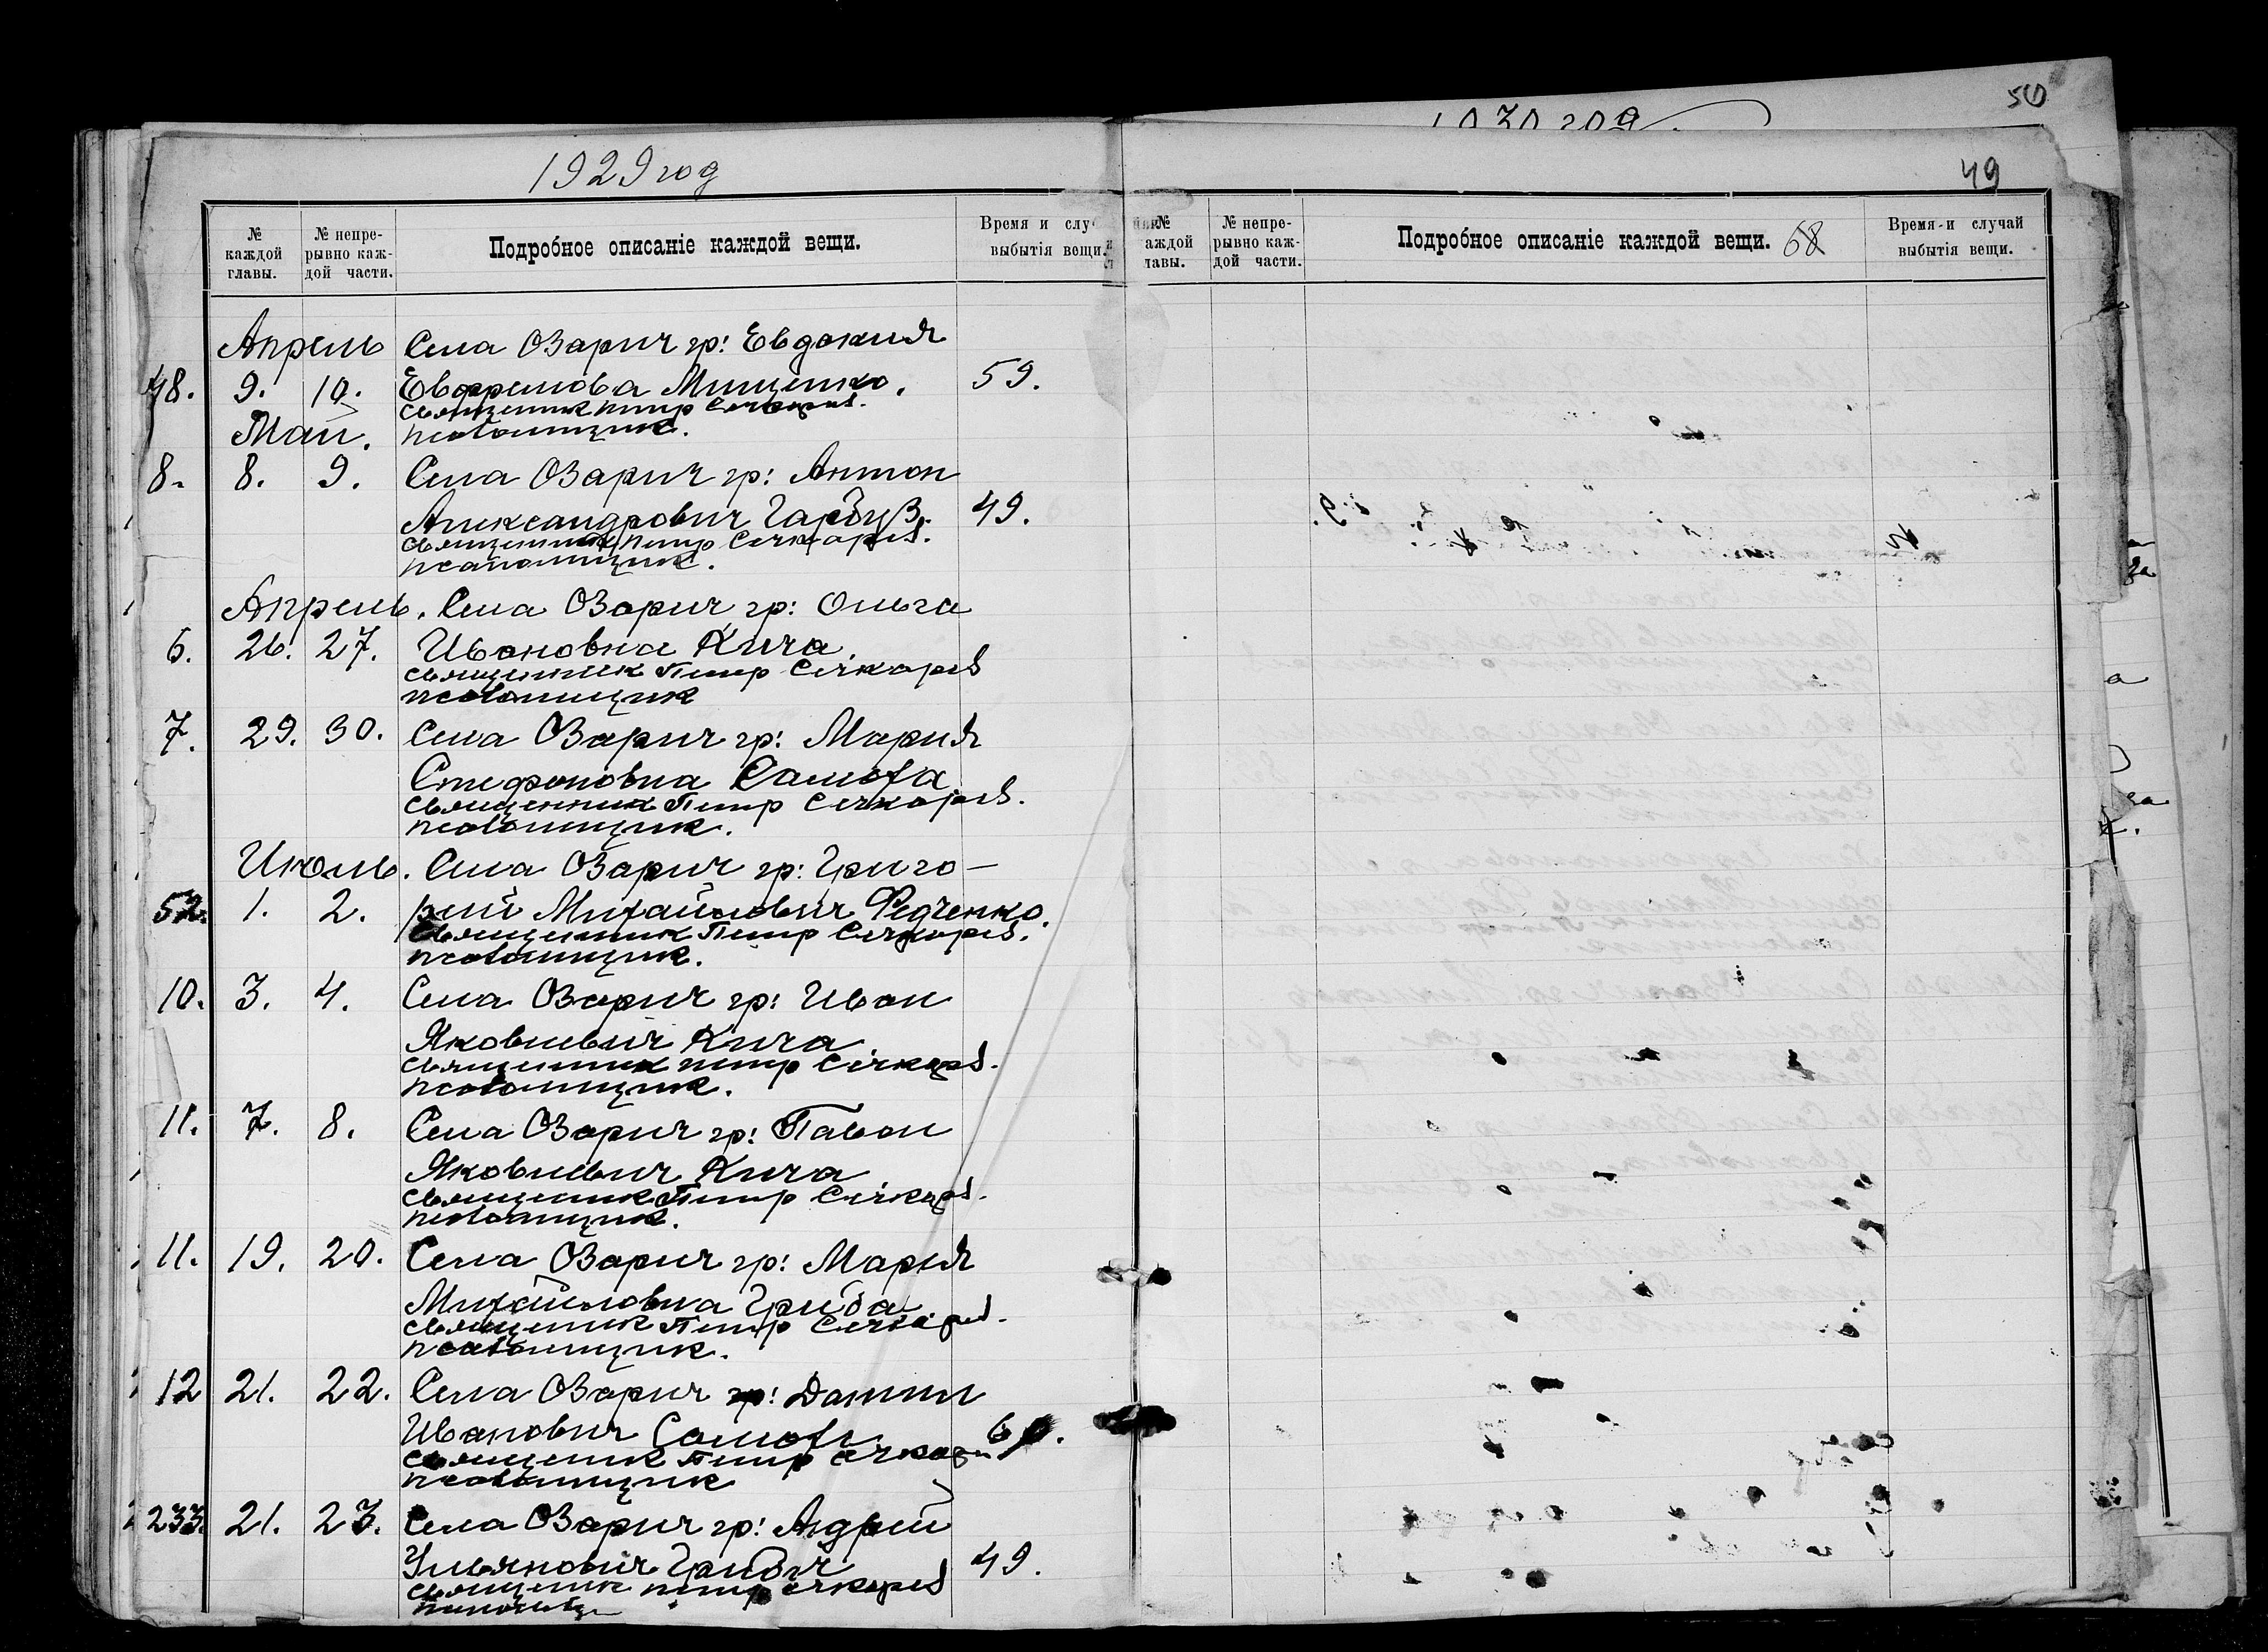 50
1929 год
49
№ каждой главы.
№ непре-рывно каж-дой части.
Подробное описаніе каждой вещи.
Время и слу
выбытія вещи.
№
аждой
лавы.
№ непре-рывно каж-дой части.
Подробное описаніе каждой вещи. 68
Время и случай выбытія вещи.
Апрель Села Озарич гр: Евдокия
48. 9. 10. Евфремова Мищенко. 59.
священник Петр Сечкарев.
Май. псаломщик.
8. 8. 9. Села Озарич гр: Антон
Александрович Гарбуз. 49.
священник Петр Сечкарев.
псаломщик.
Апрель. Села Озарич гр: Ольга
6. 26. 27. Ивановна Кича.
священник Петр Сечкарев
псаломщик
7. 29. 30. Села Озарич гр: Мария
Стефановна Самоха
священник Петр Сечкарев.
псаломщик.
Июль. Села Озарич гр: Григо-
52. 1. 2. рий Михайлович Федченко.
священник Петр Сечкарев.
псаломщик.
10. 3. 4. Села Озарич гр: Иван
Яковлевич Кича
священник Петр Сечкарев.
псаломщик.
11. 7. 8. Села Озарич гр: Павел
Яковлевич Кича
священник Петр Сечкарев.
псаломщик.
11. 19. 20. Села Озарич гр: Мария
Михайловна Гриба
священник Петр Сечкарев.
псаломщик.
12 21. 22. Села Озарич гр: Данил
Иванович Самоха 60.
священник Петр Сечкарев
псаломщик
233. 21. 23. Села Озарич гр: Андрей
Ульянович Гриб 49.
священник Петр Сечкарев
псаломщик